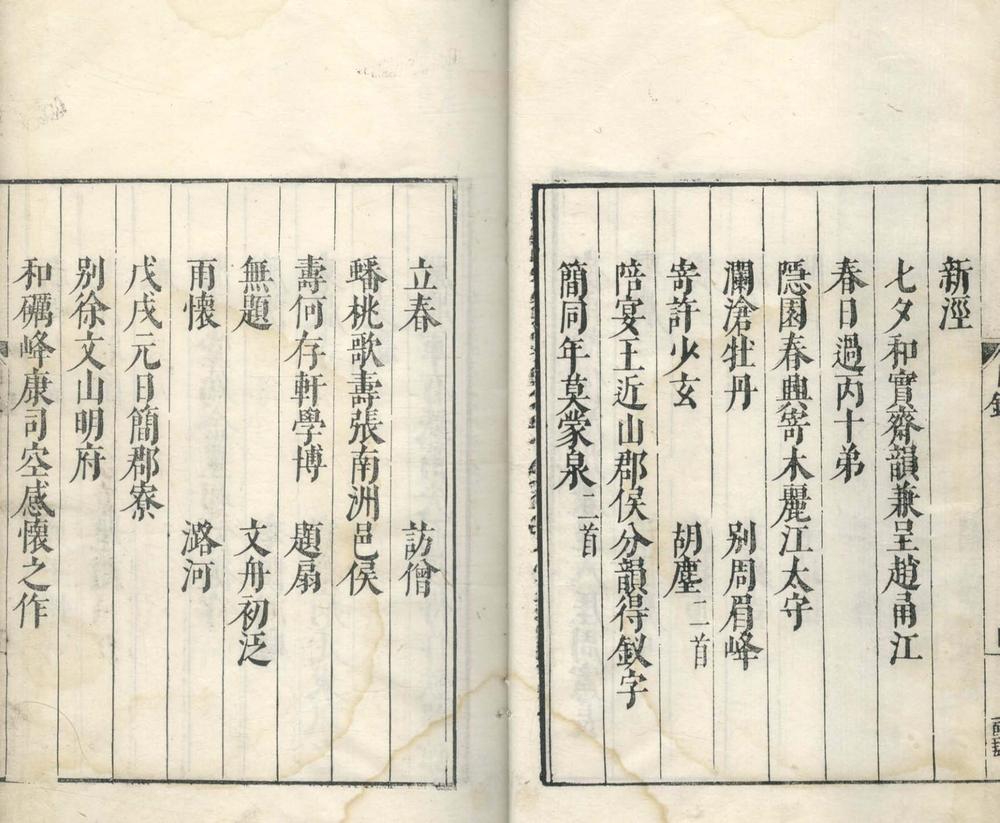 新淫
七夕和實齋韻兼呈趙甬江
春日過丙十弟
隱園春興寄木麗江太守
瀾滄牡丹 別周眉峰
寄許少玄 胡塵二首
陪宴王近山郡侯分韻得釵字
簡同年莫蒙泉二首
立春 訪僧
蟠桃歌壽張南洲邑侯
壽何存軒學博 題扇
無題 文舟初泛
雨懷 潞河
戊戌元日簡郡寮
別徐文山明府
和礪峰康司空感懷之作